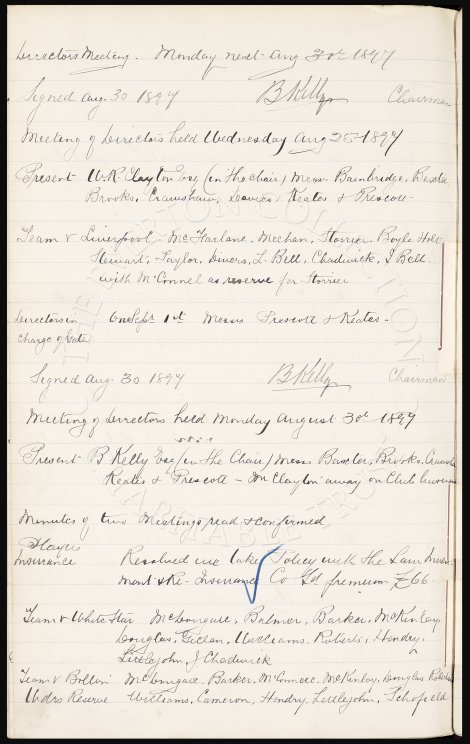 Directors Meeting. Monday next Aug 30th 1897
Signed Aug. 30 1897 B Kelly Chairman
Meeting of Directors held Wednesday Aug 25 1897
Present W.R. Clayton Esq (in the chair) Messrs Bainbridge, Baxter
Brooks, Crawshaw, Davies, Keates & Prescott -
Team v Liverpool. McFarlane, Meehan, Storrier, Boyle Holt
Stewart, Taylor, Divers, L. Bell, Chadwick, J Bell.
with McConnel as reserve for Storrier
Directors in One Sept 1st Messrs Prescott & Keates -
charge of Gate
Signed Aug. 30 1897 B Kelly Chairman
Meeting of Directors held Monday August 30th 1897
Present B Kelly Esq (in the Chair) Messrs Baxter, Brooks,
Keates & Prescott - Mr Clayton away on Club business
Minutes of two Meetings read & confirmed
Players
Insurance Resolved we take Policy with the Law
ment & Re-Insurance Co Ld premium £66.
Team v White Star McGougall, Balmer, Barker, McKinlay
Douglas, Gillan, Williams, Roberts, Hendry,
Littlejohn, J Chadwick
Team v Bolton McGougall, Barker, McConnell, McKinlay, Douglas Roberts
Wdrs Reserve Williams, Cameron, Hendry, Littlejohn, Schofield